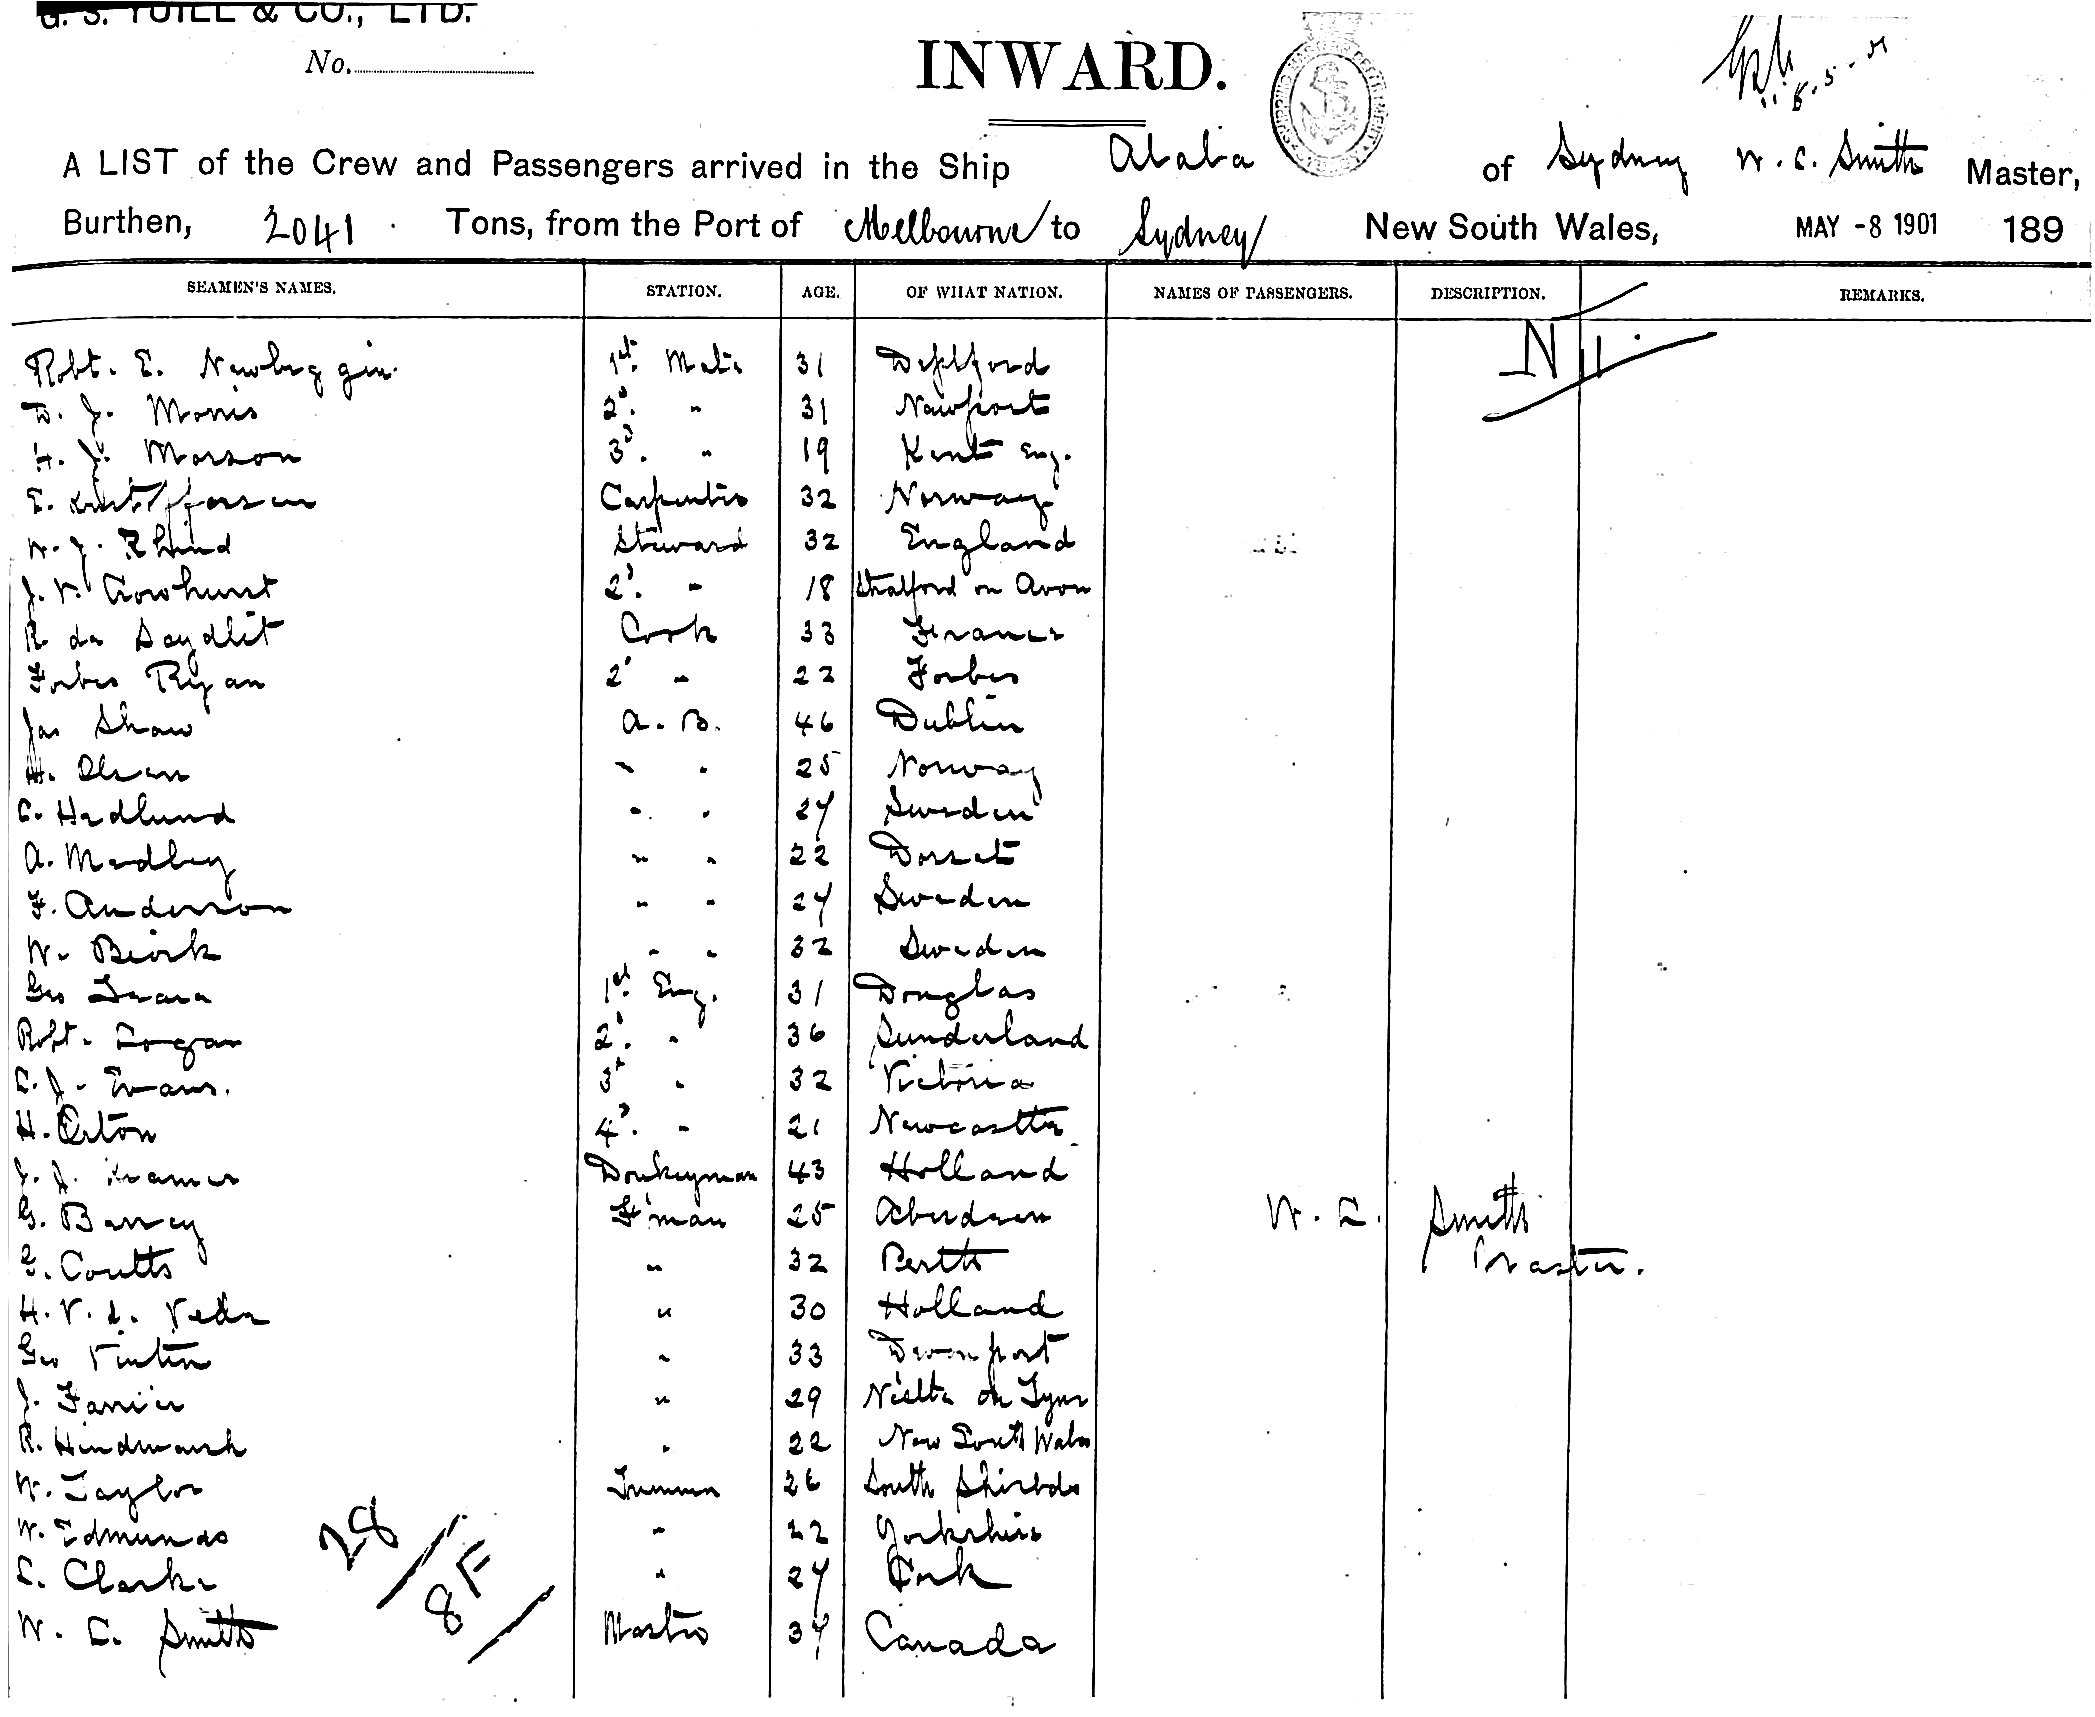 G. S. YUILL & CO., LTD.
No.
INWARD.
8.5.01
A LIST of the Crew and Passengers arrived in the Ship Ababa of Sydney W. C. Smith Master,
Burthen, 2041 Tons, from the Port of Melbourne to Sydney New South Wales, MAY -8 1901 189
SEAMEN'S NAMES. STATION. AGE. OF WHAT NATION. NAMES OF PASSENGERS. DESCRIPTION. REMARKS.
Nil.
Robt. E. Newbiggin. 1st. Mate 31 Deptford
D. J. Morris 2d. " 31 Newport
H. J. Morson 3d. " 19 Kent Eng.
E. Kristoffersen Carpenter 32 Norway
W. J. Rhind Steward 32 England
J. V. Crowhurst 2d. " 18 Stratford on Avon
R de Seydlit Cook 33 France
Forbes Ryan 2d " 22 Forbes
Jas Shaw A. B. 46 Dublin
H. Olsen " " 25 Norway
C. Hedlund " " 27 Sweden
A. Medley " " 22 Dorset
F. Anderson " " 27 Sweden
W. Biork " " 32 Sweden
Geo 1st. Eng. 31 Douglas
Robt. Logan 2d. " 36 Sunderland
C. J. Evans. 3d " 32 Victoria
H. Orton 4d. " 21 Newcastle
J. J. Kramer Donkeyman 43 Holland
G. Barrey F'man 25 Aberdeen
W. C. Smith
G. Coutts " 32 Perth
Master.
H. V. d. Veda " 30 Holland
Geo Vinten " 33 Devonport
J. Farrier " 29 N'cstle on Tyne
R. Hindmarsh " 22 New South Wales
W. Taylor Trimmer 26 South Shields
W. Edmunds " 22 Yorkshire
C. Clarke " 27 Cork
28/
8F/
W. C. Smith Master 37 Canada